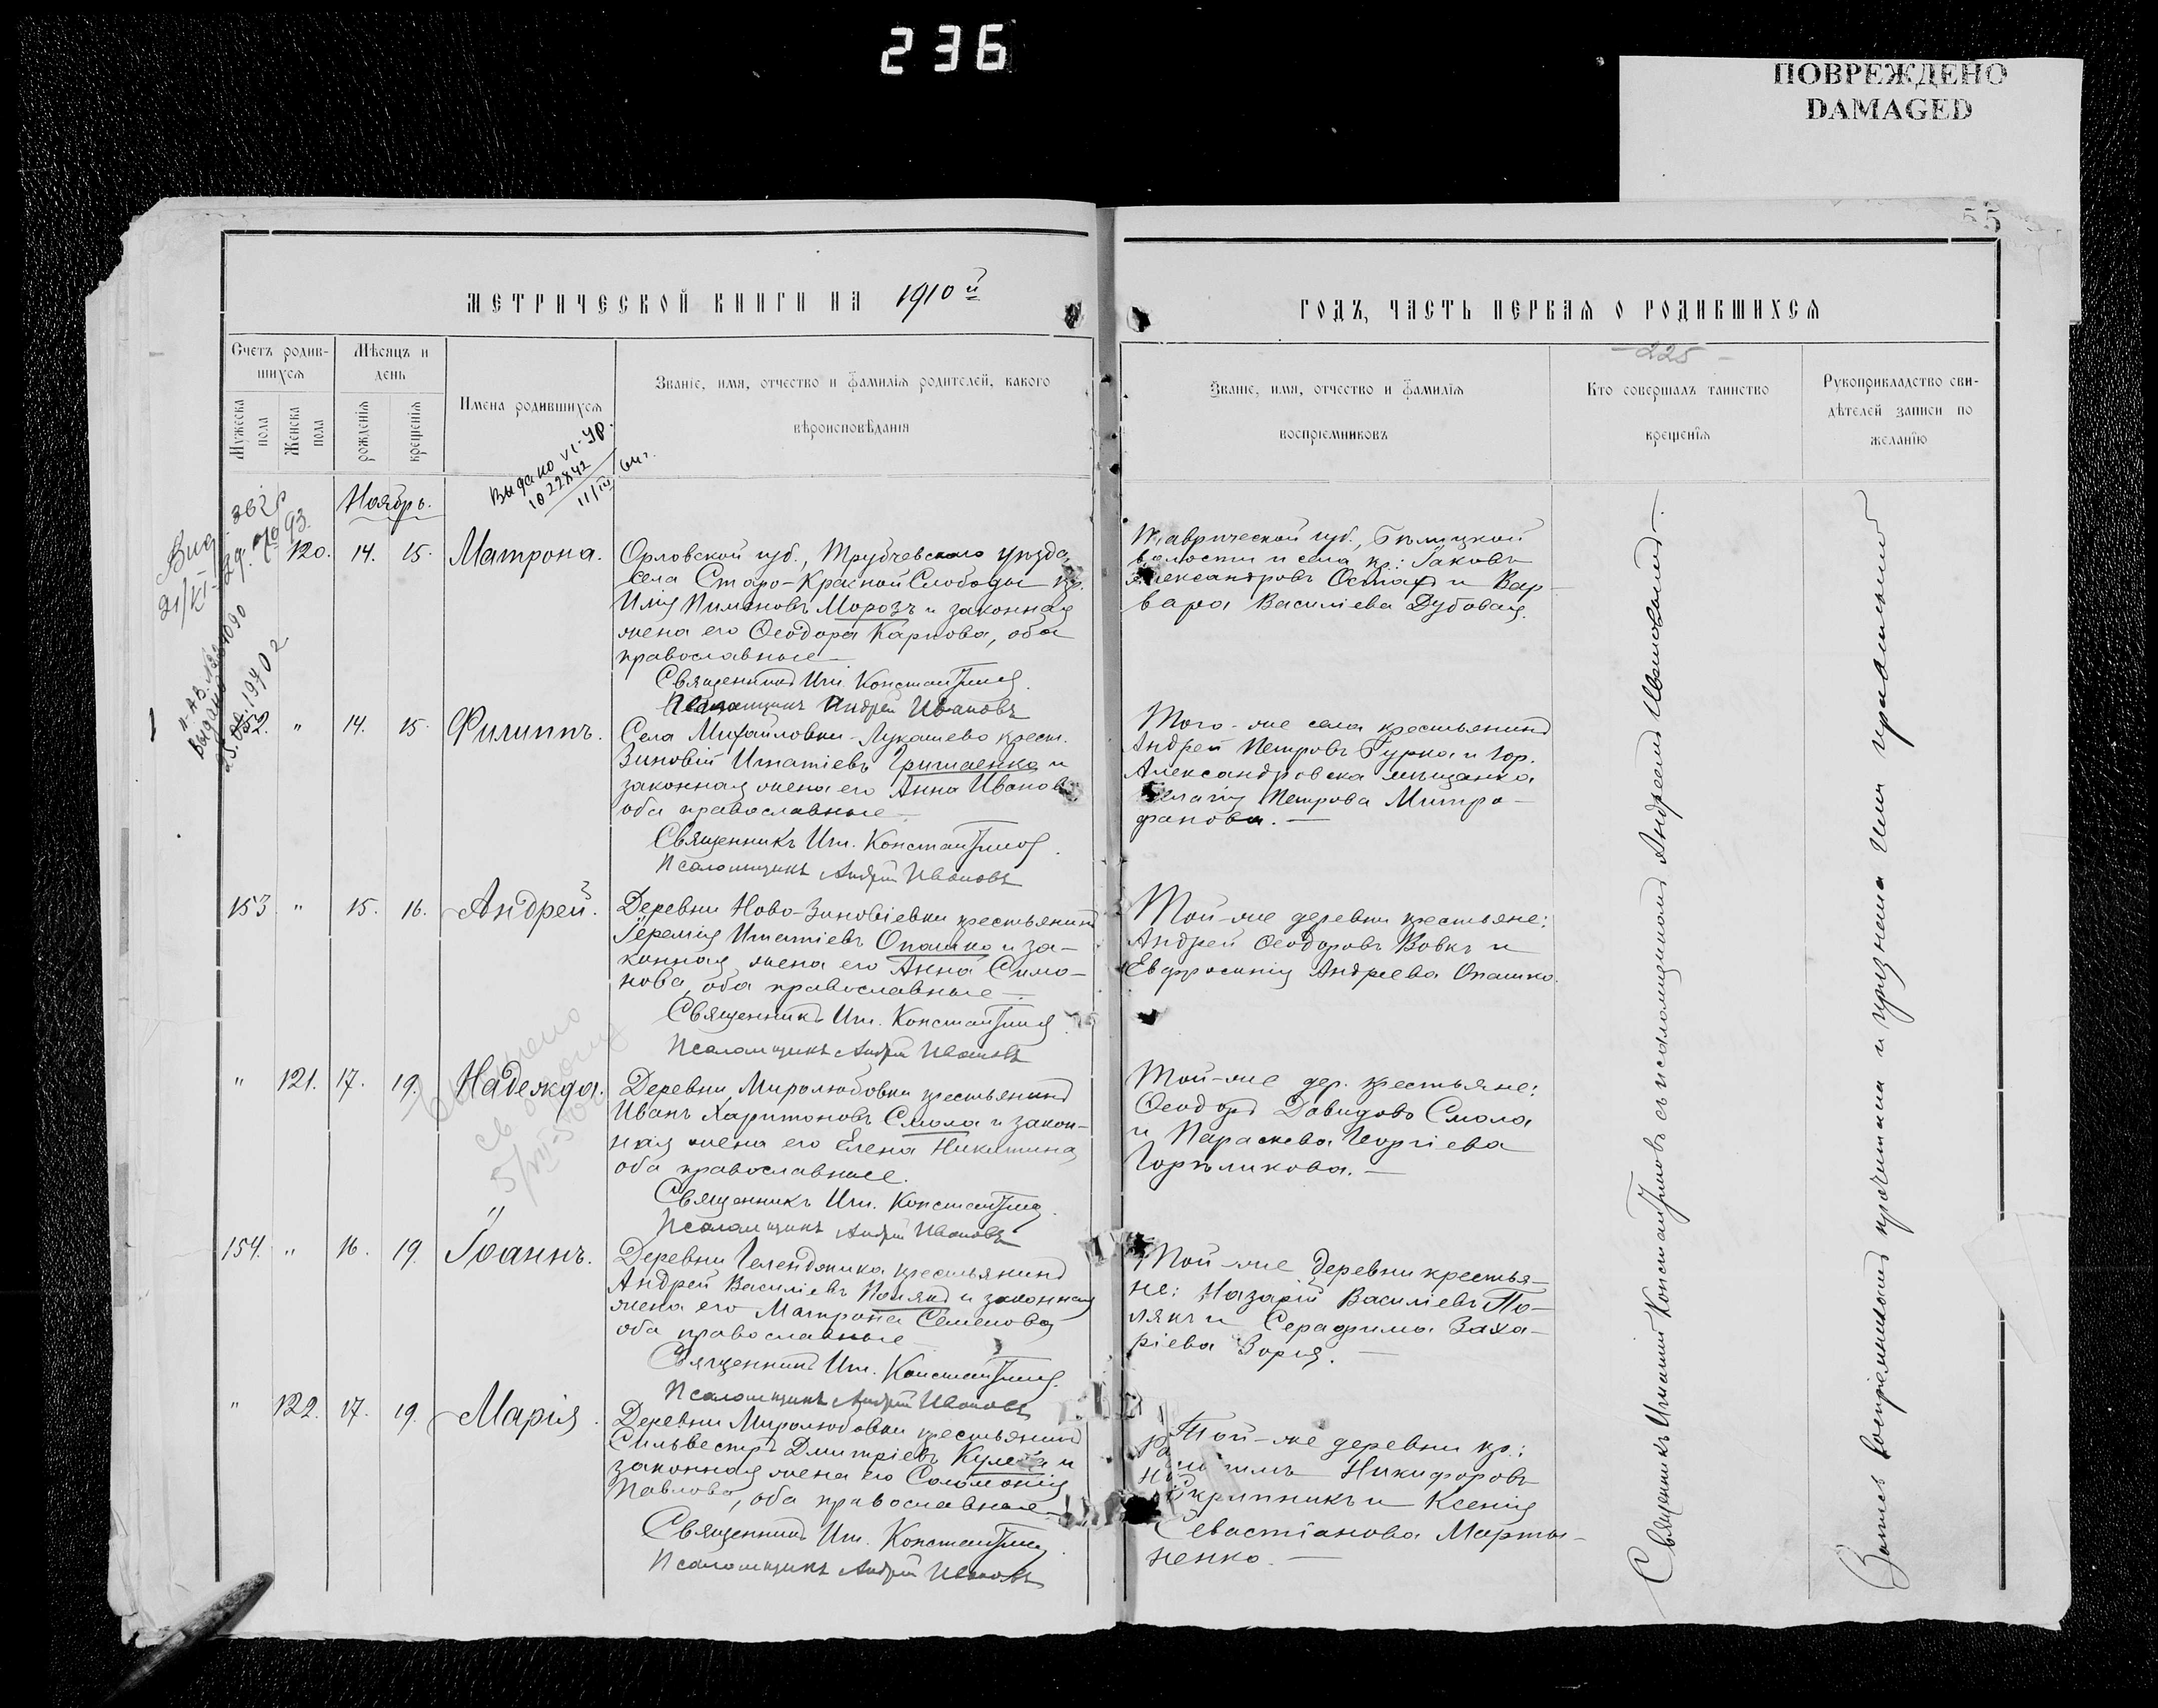 236
ПОВРЕЖДЕНО
DAMAGED
55
МЕТРИЧЕСКОЙ КНИГИ НА 1910й
ГОДЪ, ЧАСТЬ ПЕРВАЯ О РОДИВШИХСЯ
Счетъ родив-
шихся
Мѣсяцъ и
день
Мужеска
пола
Женска
пола
рожденія
крещенія
Имена родившихся
Званіе, имя, отчество и фамилія родителей, какого
вѣроисповѣданія
Званіе, имя, отчество и фамилія
воспріемниковъ
— 225 —
Кто совершалъ таинство
крещенія
Рукоприкладство сви-
дѣтелей записи по
желанію
Выдано VI-УР.
1022842
11/III
Ноябрь.
120. 14. 15. Матрона.
Орловской губ., Трубчевскаго уѣзда,
села Старо-Красной Слободы кр.
Илія Пименовъ Морозъ и законная
жена его Ѳеодора Карпова, оба
православные —
Священникъ Игн. Константиновъ.
Псаломщикъ Андрей Ивановъ
Таврической губ., Бѣлицкой
волости и села кр.: Іаковъ
Александровъ Остап и Вар-
вара Василіева Дубовая.
152. " 14. 15. Филиппъ.
Села Михайловки-Лукашево крест.
Зиновій Игнатіевъ Гришаенко и
законная жена его Анна Иванова
оба православные —
Священникъ Игн. Константиновъ.
Псаломщикъ Андрей Ивановъ
Того-же села крестьянинъ
Андрей Петровъ Гурка и гор.
Александровска мѣщанка
Пелагія Петрова Митро-
фанова. —
153 " 15. 16. Андрей.
Деревни Ново-Зиновіевки крестьянинъ
Іеремія Игнатіевъ Опашко и за-
конная жена его Анна Симо-
нова, оба православные —
Священникъ Игн. Константиновъ.
Псаломщикъ Андрей Ивановъ
Той-же деревни крестьяне:
Андрей Ѳеодоровъ Вовкъ и
Евфросинія Андреева Опашко.
" 121. 17. 19. Надежда.
Деревни Миролюбовки крестьянинъ
Иванъ Харитоновъ Смола и закон-
ная жена его Елена Никитина,
оба православные.
Священникъ Игн. Константиновъ.
Псаломщикъ Андрей Ивановъ
Той-же дер. крестьяне:
Ѳеодоръ Давидовъ Смола
и Параскева Георгіева
Горѣликова. —
154. " 16. 19. Іоаннъ.
Деревни Геленджика крестьянинъ
Андрей Василіевъ Полякъ и законная
жена его Матрона Семенова
оба православные —
Священникъ Игн. Константиновъ.
Псаломщикъ Андрей Ивановъ
Той-же деревни крестья-
не: Назарій Василіевъ По-
лякъ и Серафима Заха-
ріева Зоря. —
" 122. 17. 19. Марія.
Деревни Миролюбовки крестьянинъ
Сильвестръ Дмитріевъ и
законная жена его Соломонія
Павлова, оба православные —
Священникъ Игн. Константиновъ.
Псаломщикъ Андрей Ивановъ
Той-же деревни кр.:
Никифоровъ
Скрипникъ и Ксенія
Севастіанова Марты-
ненко. —
Священникъ Игнатій Константиновъ съ псаломщикомъ Андреемъ Ивановымъ.